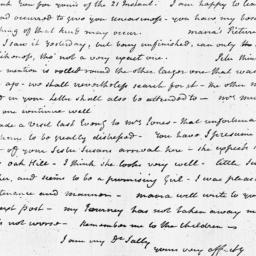 you for yours of the 21 Instant. I am happy to lea
nd occurred to give you uneasiness - you have my bes
thing of that kind may occur. Maria's Picture
I saw it yesterday, but being unfinished, can only
not a very upset one.
motion is rolled round the other larger one that was
we shall nevertheless search for it - the other
in your letter shall also be attended to - Mrs
one continue well
made a visit last Evening to Mrs Jones - that unfortuna
to be greatly distressed - You have I presume
of your Sister Susans arrival here - she expects
oak Hill - I think she looks very well - little
and seems to be a promising Girl - I was please
tenance and manners - Maria will write to you
next post - my Journey has not taken away
not worse - Remember me to the children
I am my Dr Sally
yours very aff